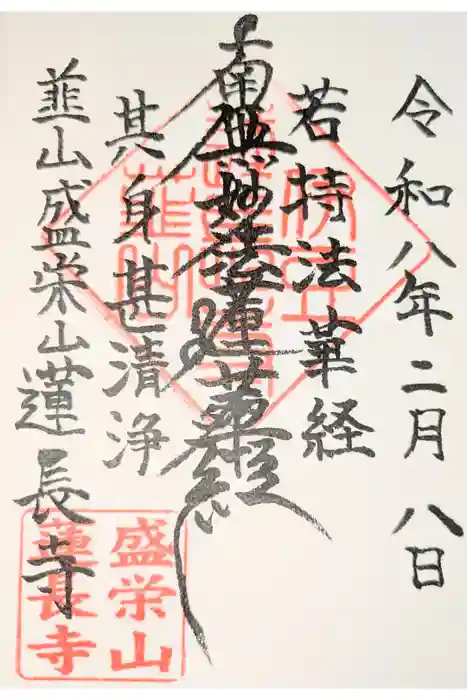 令和八年二月八日
若持法華経
南無妙法蓮華経
其身甚清浄
韮山盛栄山蓮長寺
盛栄山
蓮長寺